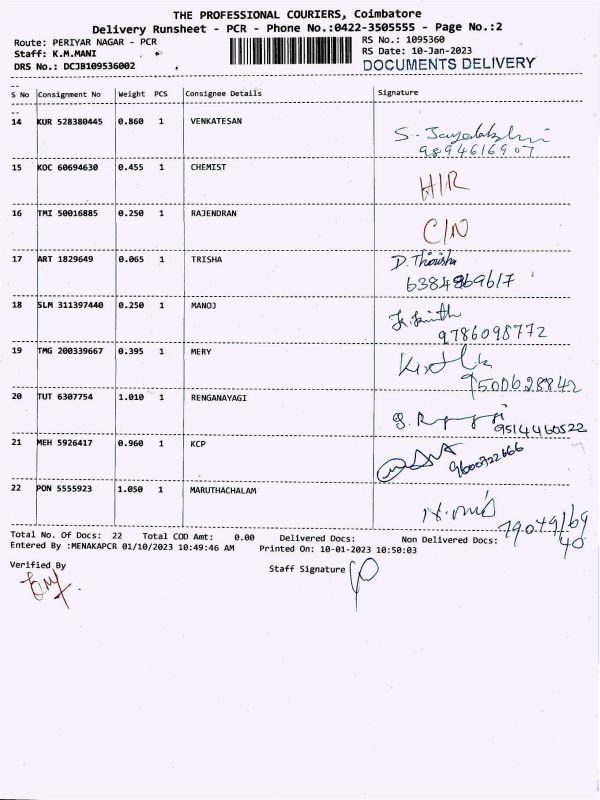 THE PROFESSIONAL COURIERS, Coimbatore
Delivery Runsheet - PCR - Phone No.:0422-3505555 - Page No.:2
Route: PERIYAR NAGAR - PCR
Staff: K.M.MANI
DRS No.: DCJB109536002
RS No.: 1095360
RS Date: 10-Jan-2023
DOCUMENTS DELIVERY
S No Consignment No Weight PCS Consignee Details Signature
14 KUR 528380445 0.860 1 VENKATESAN
9894616907
15 KOC 60694630 0.455 1 CHEMIST H/R
16 TMI 50016885 0.250 1 RAJENDRAN C/N
17 ART 1829649 0.065 1 TRISHA D.
6384869617
18 SLM 311397440 0.250 1 MANOJ
9786098772
19 TMG 200339667 0.395 1 MERY
9500628842
20 TUT 6307754 1.010 1 RENGANAYAGI
9514460522
21 MEH 5926417 0.960 1 KCP
9600722666
22 PON 5555923 1.050 1 MARUTHACHALAM
79049/69
40
Total No. Of Docs: 22 Total COD Amt: 0.00 Delivered Docs: Non Delivered Docs:
Entered By :MENAKAPCR 01/10/2023 10:49:46 AM Printed On: 10-01-2023 10:50:03
Verified By
Staff Signature